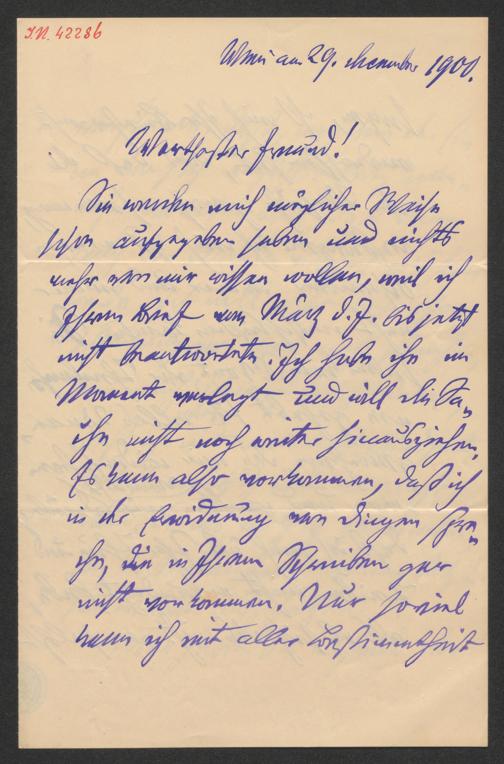 I.N. 42286
Wien am 29. Dezember 1900.
Werthester Freund!
Sie werden mich möglicher Weise
schon aufgegeben haben und nichts
mehr von mir wissen wollen, weil ich
Ihren Brief vom März d. J. bis jetzt
nicht beantwortete. Ich habe ihn im
Moment verlegt und will die Sa=
che nicht noch weiter hinausziehen.
Es kann also vorkommen, daß ich
in der Erwiderung von Dingen spre=
che, die in Ihrem Schreiben gar
nicht vorkommen. Nur soviel
kann ich mit aller Bestimmtheit